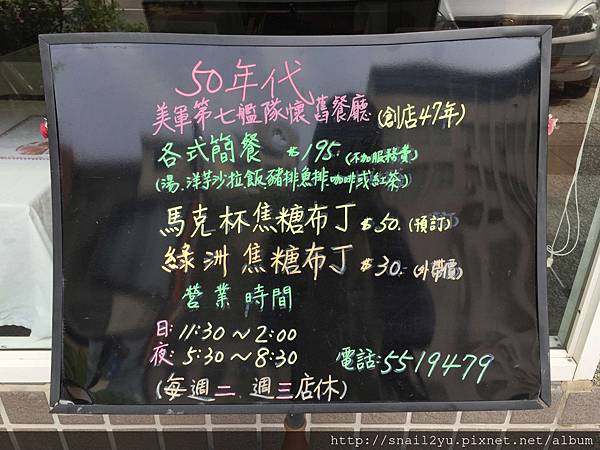 50年代
美軍第七艦隊懷舊餐廳(創店47年)
各式簡餐 $195.(不加服務費)
(湯.洋芋沙拉飯豬排魚排咖啡或紅茶)
馬克杯焦糖布丁 $50.(預訂)
綠洲焦糖布丁 $30.(外帶價)
營業時間
日:11:30～2:00
夜:5:30～8:30 電話:5519479
(每週二、週三店休)
http://snail2yu.pixnet.net/album